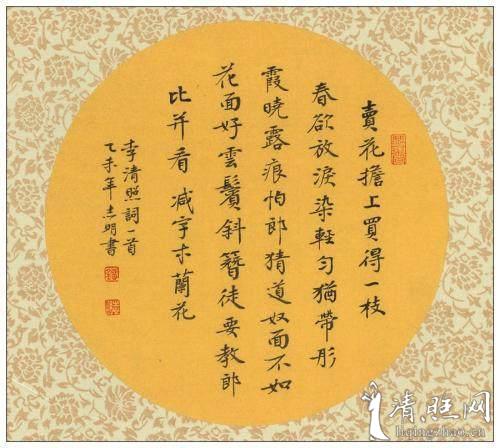 賣花擔上買得一枝
春欲放淚染輕勻猶帶彤
霞曉露痕怕郎猜道奴面不如
花面好雲鬢斜簪徒要教郎
比并看 减字木蘭花
李清照詞一首
乙未年志明書
liqingzhao.cn